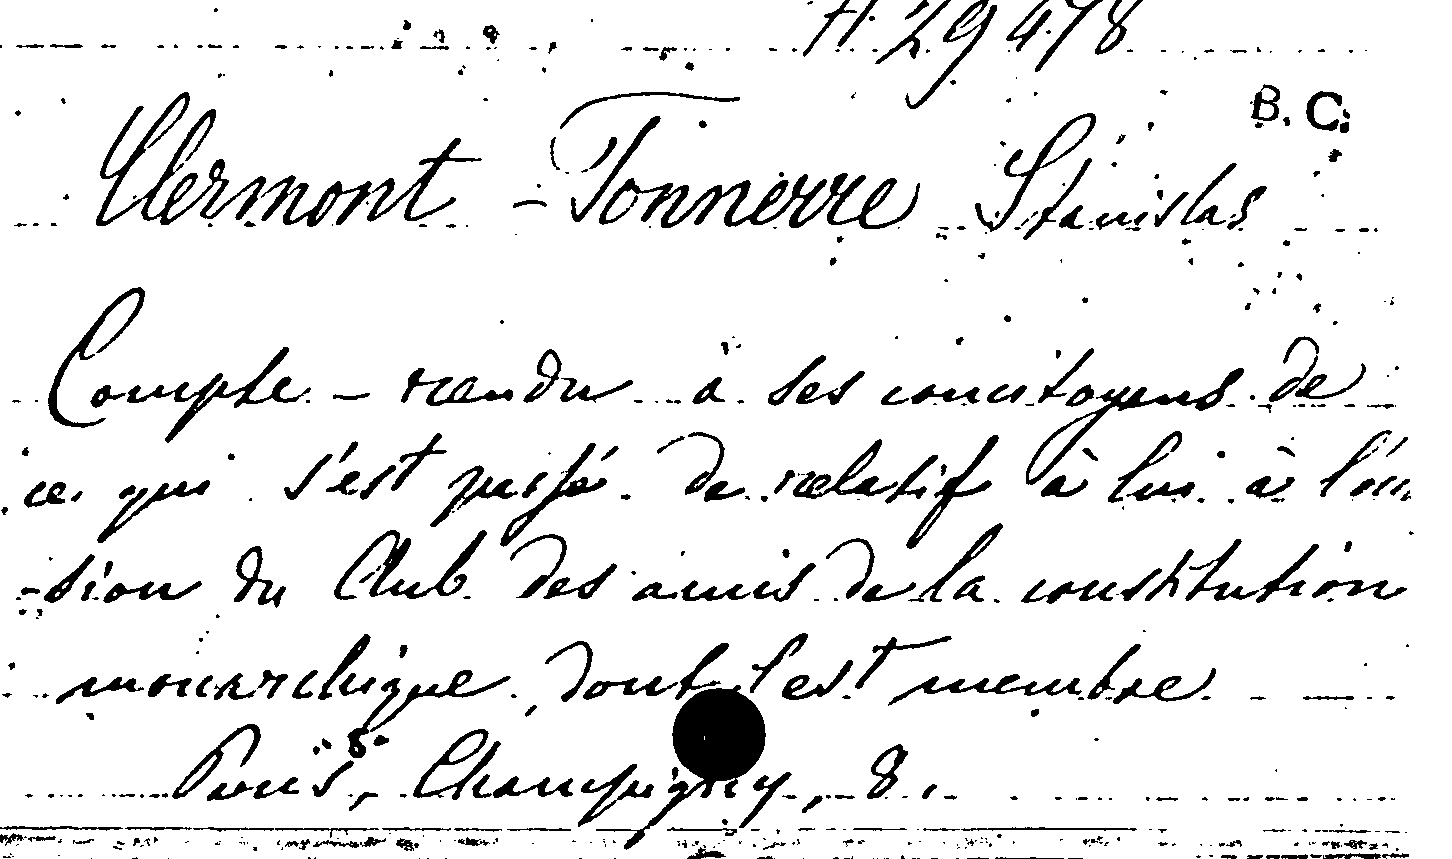 H 29478
B. C.
Clermont - Tonnerre Stanislas
Compte - rendu à ses concitoyens de
ce qui s'est passé de relatif à lui à
-sion du Club des amis de la constitution
monarchique, dont il est membre
Paris, Champigny, 8.